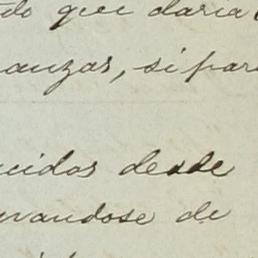 do que daria
anzas, si para
cidos desde
vandose de